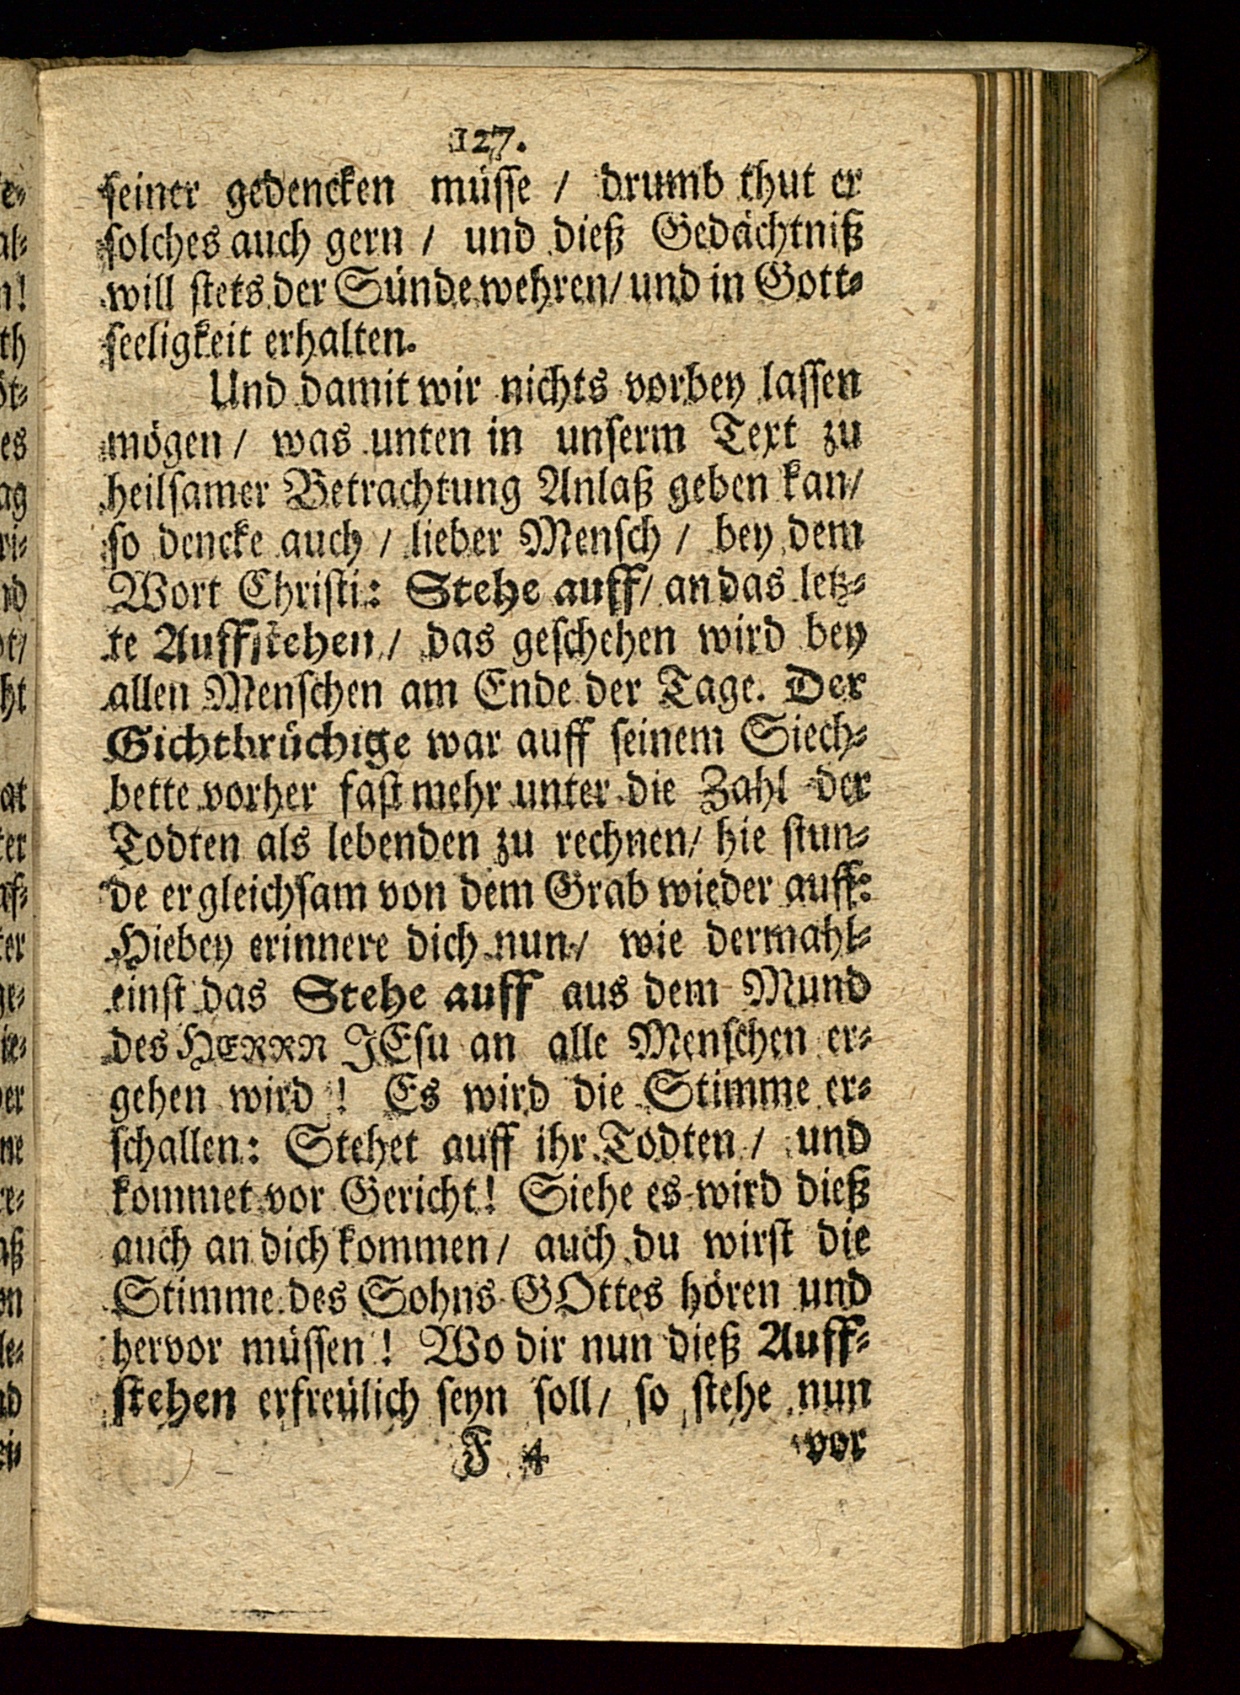 127.
seiner gedencken müsse / drumb thut er
solches auch gern / und dieß Gedächtniß
will stets der Sünde wehren/ und in Gott-
seeligkeit erhalten.
Und damit wir nichts vorbey lassen
mögen / was unten in unserm Text zu
heilsamer Betrachtung Anlaß geben kan/
so dencke auch / lieber Mensch / bey dem
Wort Christi: Stehe auff/ an das letz-
te Auffstehen / das geschehen wird bey
allen Menschen am Ende der Tage. Der
Gichtbrüchige war auff seinem Siech-
bette vorher fast mehr unter die Zahl der
Todten als lebenden zu rechnen/ hie stun-
de er gleichsam von dem Grab wieder auff:
Hiebey erinnere dich nun/ wie dermahl-
einst das Stehe auff aus dem Mund
des HERRN JEsu an alle Menschen er-
gehen wird ! Es wird die Stimme er-
schallen: Stehet auff ihr Todten / und
kommet vor Gericht! Siehe es wird dieß
auch an dich kommen/ auch du wirst die
Stimme des Sohns GOttes hören und
hervor müssen ! Wo dir nun dieß Auff-
stehen erfreülich seyn soll/ so stehe nun
F 4 vor